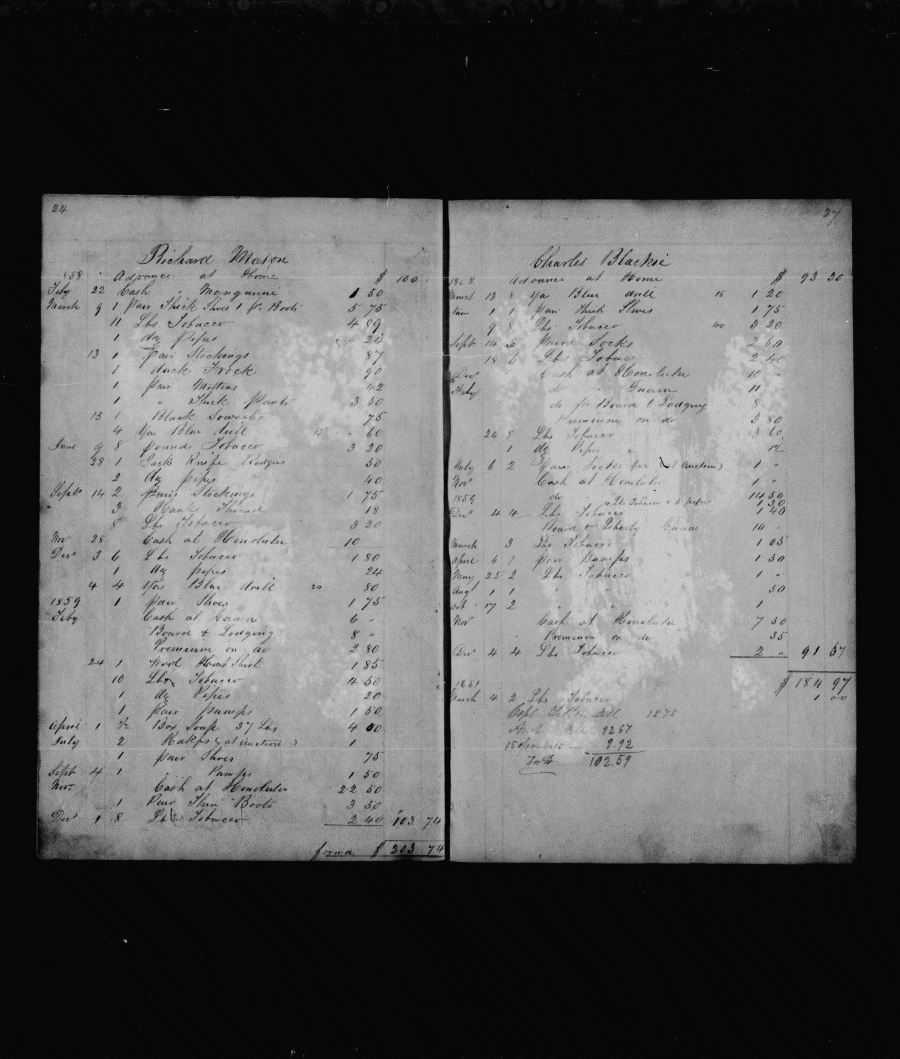 24
Richard Mason
1858 Advance at Home $ 100
Feby 22 Cash " Manganui 1 50
March 9 1 Pair Thick Shoes 1 pr Boots 5 75
11 Lbs Tobacco 4 89
1 dz Pipes 24
13 1 pair Stockings 87
1 duck Frock 90
1 pair Mittens 42
1 " Thick Pants 3 50
13 1 Black Souwester 75
4 Yds Blue drill 15 60
June 9 8 pounds Tobacco 3 20
28 1 Jack Knife Rodgers 50
2 dz pipes 40
Sept 14 2 pairs Stockings 1 75
3 Hanks Thread 18
8 Lbs Tobacco 3 20
Nov 28 Cash at Honolulu 10
Decr 3 6 Lbs Tobacco 1 80
1 dz pipes 24
4 4 Yds Blue drill 20 80
1859 1 pair Shoes 1 75
Feby Cash at Guam 6 "
Board & Lodging 8 "
Premium on do 2 80
24 1 Wool Shirt 1 85
10 Lbs Tobacco 4 50
1 dz Pipes 20
1 pair Pumps 1 50
April 1 ½ Box Soap 37 Lbs 4 00
July 2 (at auction) 1
1 pair Shoes 75
Sept 4 1 Pumps 1 50
Novr Cash at Honolulu 22 50
1 Pair Thin Boots 3 50
Decr 1 8 Lbs Tobacco 2 40 103 74
forwd $ 203 74
27
Charles Blackie
1858 Advance at Home $ 93 30
March 13 8 Yds Blue drill 15 1 20
1 1 pair Thick Shoes 1 75
9 8 Lbs Tobacco 40 3 20
Sept 14 6 pairs Socks 2 50
18 6 Lbs Tobacco 2 40
Decr Cash at Honolulu 10 "
Feby do " Guam 11 "
do for Board & Lodging 8
Premium on do 3 80
24 8 Lbs Tobacco 3 60
1 dz Pipes 12
July 6 2 (at auction) 1 "
Nov Cash at Honolulu 1 "
1859 do 14 50
Decr 4 4 Lbs Tobacco 1 40
Board & Liberty Guam 10 "
March 3 Lbs Tobacco 1 05
April 6 1 pair Pumps 1 50
May 25 2 Lbs Tobacco 1 "
Aug 1 1 " " 50
Oct 17 2 " " 1
Nov Cash at Honolulu 7 50
Premium on do 35
Decr 4 4 Lbs Tobacco 2 " 91 67
$ 184 97
1861
March 4 2 Lbs Tobacco 1 00
Bill 12.75
92 67
9.92
102.59